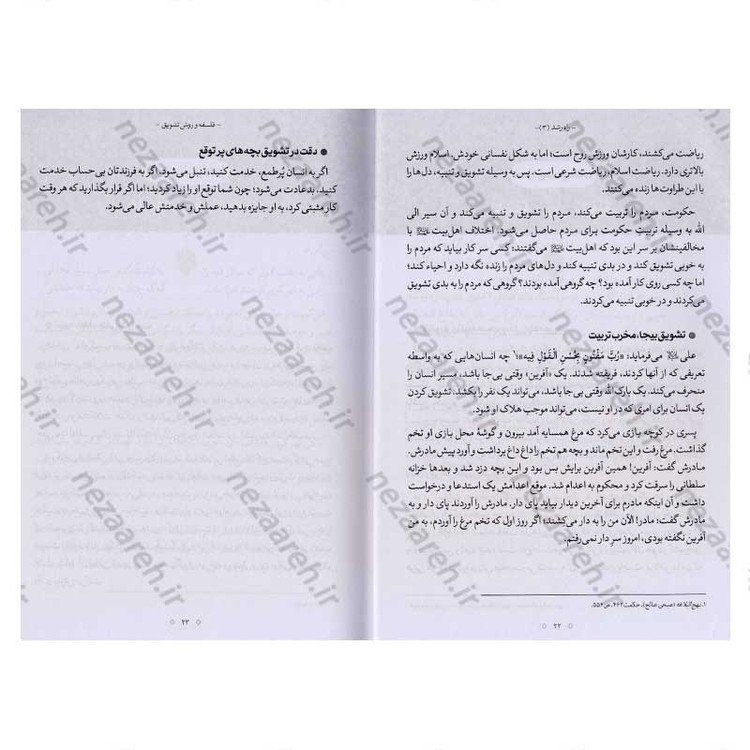 - راه رشد (۳) -
ریاضت می‌کشند، کارشان ورزش روح است؛ اما به شکل نفسانی خودش. اسلام ورزش
بالاتری دارد. ریاضت اسلام، ریاضت شرعی است. پس به وسیله تشویق و تنبیه، دل‌ها را
با این طراوت‌ها زنده می‌کنند.
حکومت، مردم را تربیت می‌کند، مردم را تشویق و تنبیه می‌کند و آن سیر الی
الله به وسیله تربیتِ حکومت برای مردم حاصل می‌شود. اختلاف اهل‌بیت با
مخالفینشان بر سر این بود که اهل‌بیت می‌گفتند: کسی سر کار بیاید که مردم را
به خوبی تشویق کند و در بدی تنبیه کند و دل‌های مردم را زنده نگه دارد و احیاء کند؛
اما چه کسی روی کار آمده بود؟ چه گروهی آمده بودند؟ گروهی که مردم را به بدی تشویق
می‌کردند و در خوبی تنبیه می‌کردند.
● تشویق بیجا، مخرب تربیت
علی می‌فرماید: «رُبَّ مَفْتُونٍ بِحُسْنِ الْقَوْلِ فِیهِ»؛۱ چه انسان‌هایی که به واسطه
تعریفی که از آنها کردند، فریفته شدند. یک «آفرین» وقتی بی‌جا باشد، مسیر انسان را
منحرف می‌کند. یک بارک الله وقتی بی‌جا باشد، می‌تواند یک نفر را بکشد. تشویق کردن
یک انسان برای امری که در او نیست، می‌تواند موجب هلاک او شود.
پسری در کوچه بازی می‌کرد که مرغ همسایه آمد بیرون و گوشهٔ محل بازی او تخم
گذاشت. مرغ رفت و این تخم ماند و بچه هم تخم را داغ داغ برداشت و آورد پیش مادرش.
مادرش گفت: آفرین! همین آفرین برایش بس بود و این بچه دزد شد و بعدها خزانه
سلطانی را سرقت کرد و محکوم به اعدام شد. موقع اعدامش یک استدعا و درخواست
داشت و آن اینکه مادرم برای آخرین دیدار بیاید پای دار. مادرش را آوردند پای دار و به
مادرش گفت: مادر! الآن من را به دار می‌کشند؛ اگر روز اول که تخم مرغ را آوردم، به من
آفرین نگفته بودی، امروز سرِ دار نمی‌رفتم.
۱. نهج‌البلاغه (صبحی صالح)، حکمت ۴۶۲، ص۵۵۶.
۲۲
- فلسفه و روش تشویق -
● دقت در تشویق بچه‌های پر توقع
اگر به انسان پُرطمع، خدمت کنید، تنبل می‌شود. اگر به فرزندتان بی‌حساب خدمت
کنید، بدعادت می‌شود؛ چون شما توقع او را زیاد کردید؛ اما اگر قرار بگذارید که هر وقت
کار مثبتی کرد، به او جایزه بدهید، عملش و خدمتش عالی می‌شود.
۲۳
nezaareh.ir
nezaareh.ir
nezaareh.ir
nezaareh.ir
nezaareh.ir
nezaareh.ir
nezaareh.ir
nezaareh.ir
nezaareh.ir